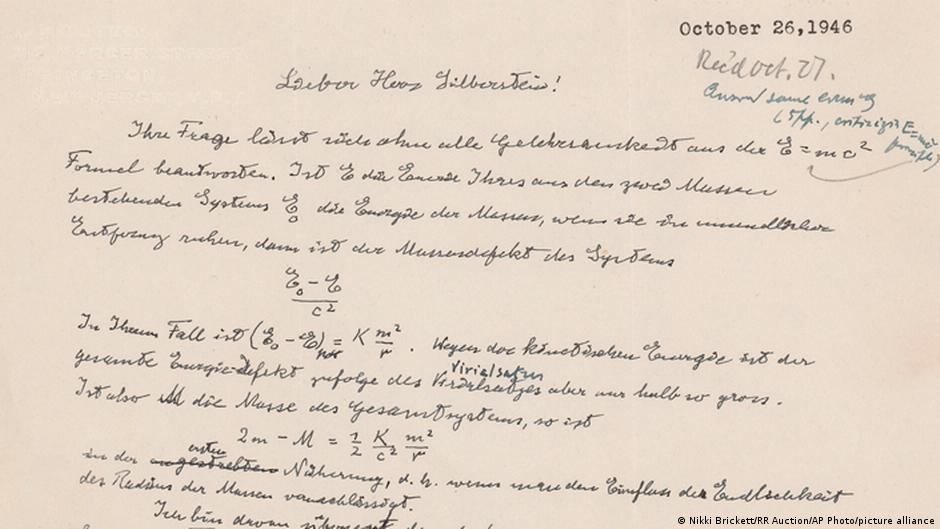 October 26,1946
Rec'd Oct. 27.
Answ'd same evening
(5 pp., criticizing E=mc²
Lieber Herr Silberstein!
Ihre Frage lässt sich ohne alle Gelehrsamkeit aus der E = mc²
Formel beantworten. Ist E die Energie Ihres aus den zwei Massen
bestehenden Systems E₀ die Energie der Massen, wenn sie in unendlicher
Entfernung ruhen, dann ist der Massendefekt des Systems
E₀ - E
c²
In Ihrem Fall ist (E₀ - E) = K m²/r . Wegen der kinetischen Energie ist der
Virialsatzes
gesamte Energie-Defekt zufolge des Virialsatzes aber nur halb so gross.
Ist also M die Masse des Gesamtsystems, so ist
2m - M = 1/2 K/c² m²/r
ersten
in der Näherung, d. h. wenn man den Einfluss der Endlichkeit
des Radius der Massen vernachlässigt.
Ich bin davon überzeugt
© Nikki Brickett/RR Auction/AP Photo/picture alliance